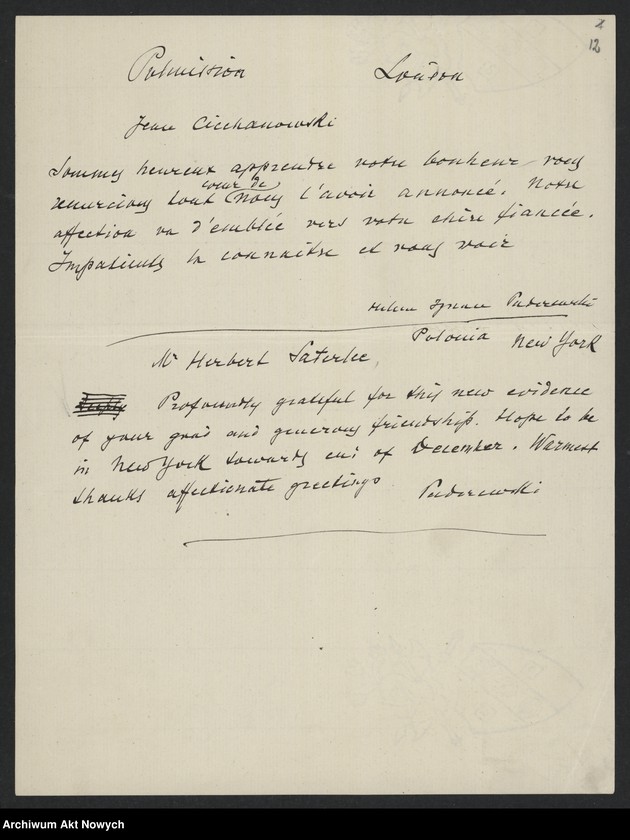 2
12
Polmission London
Jean Ciechanowski
Sommes heureux apprendre votre bonheur vous
remercions tout coeur de nous l'avoir annoncé. Notre
affection va d'emblée vers votre chère fiancée.
Impatients la connaître et vous voir
Helene Ignace Paderewski
Polonia New York
Mr Herbert Saterlee,
Deeply Profoundly grateful for this new evidence
of your great and generous friendship. Hope to be
in New York towards end of December. Warmest
thanks affectionate greetings
Paderewski
Archiwum Akt Nowych